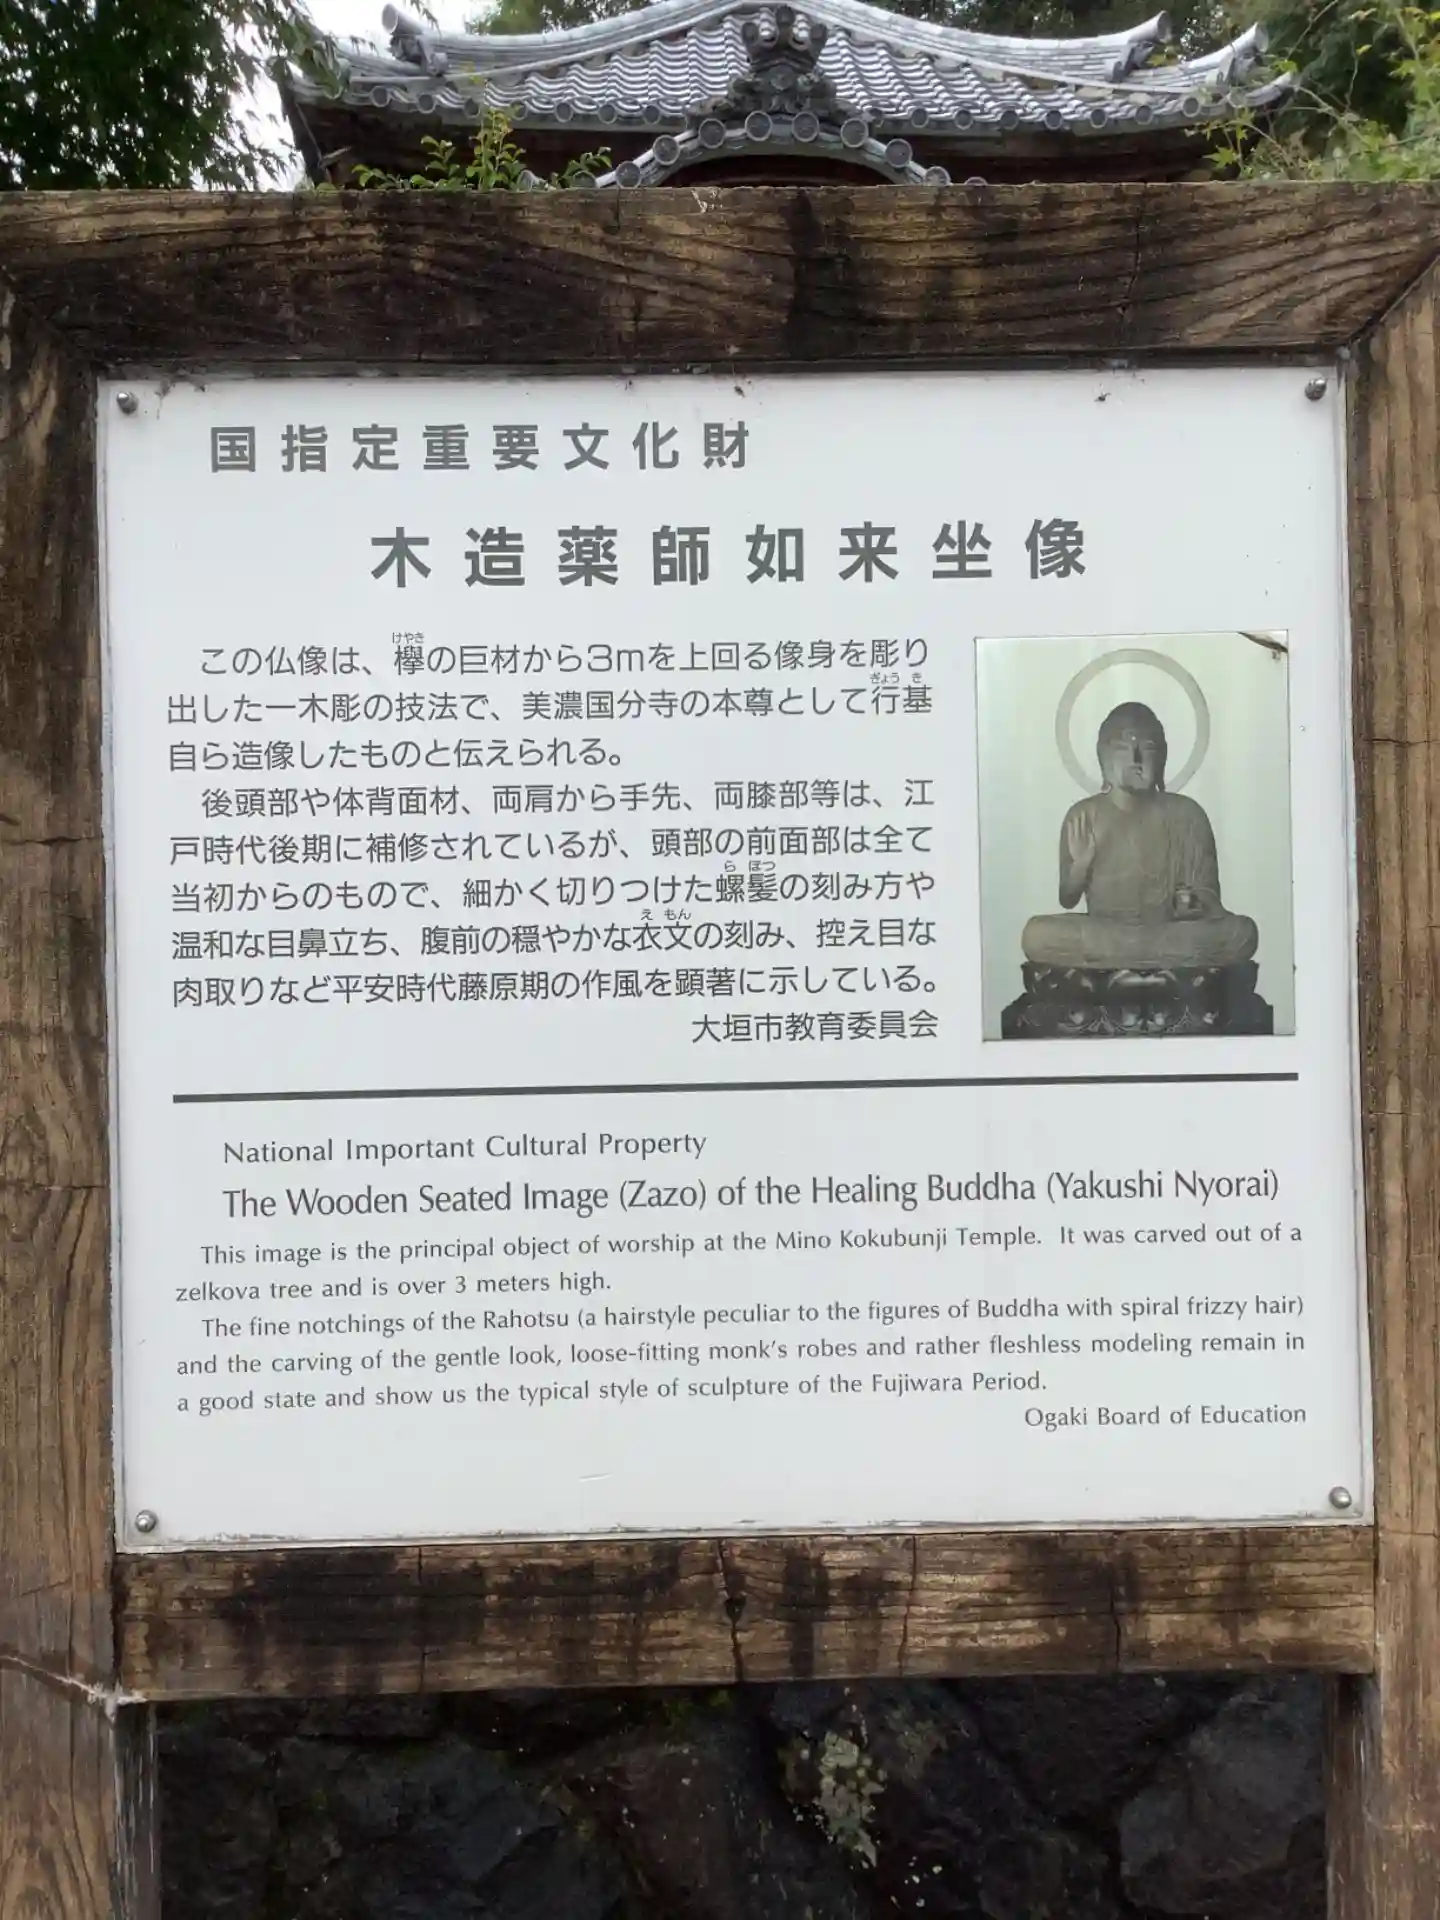 国指定重要文化財
木造薬師如来坐像
この仏像は、欅の巨材から3mを上回る像身を彫り
けやき
出した一木彫の技法で、美濃国分寺の本尊として行基
ぎょうき
自ら造像したものと伝えられる。
後頭部や体背面材、両肩から手先、両膝部等は、江
戸時代後期に補修されているが、頭部の前面部は全て
当初からのもので、細かく切りつけた螺髪の刻み方や
らほつ
温和な目鼻立ち、腹前の穏やかな衣文の刻み、控え目な
えもん
肉取りなど平安時代藤原期の作風を顕著に示している。
大垣市教育委員会
National Important Cultural Property
The Wooden Seated Image (Zazo) of the Healing Buddha (Yakushi Nyorai)
This image is the principal object of worship at the Mino Kokubunji Temple. It was carved out of a
zelkova tree and is over 3 meters high.
The fine notchings of the Rahotsu (a hairstyle peculiar to the figures of Buddha with spiral frizzy hair)
and the carving of the gentle look, loose-fitting monk's robes and rather fleshless modeling remain in
a good state and show us the typical style of sculpture of the Fujiwara Period.
Ogaki Board of Education